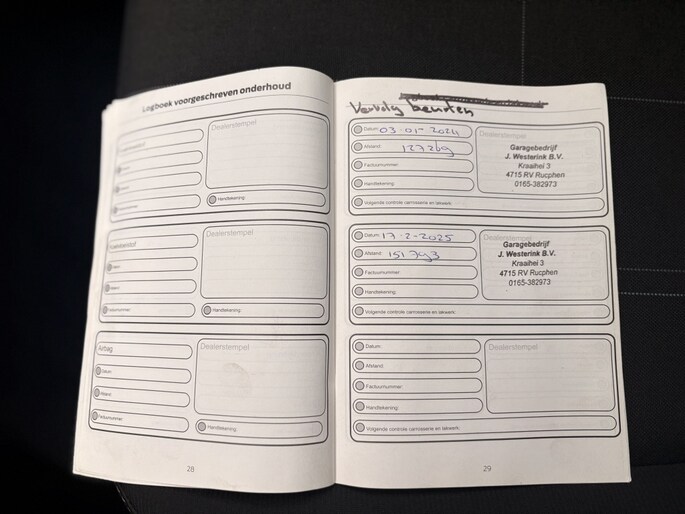 Logboek voorgeschreven onderhoud
Dealerstempel
Handtekening:
Koelvloeistof
Dealerstempel
Datum:
Afstand:
Factuurnummer:
Handtekening:
Airbag
Dealerstempel
Datum:
Afstand:
Factuurnummer:
Handtekening:
28
Vervolg beurten
Datum: 03-01-2024
Afstand: 127269
Factuurnummer:
Handtekening:
Volgende controle carrosserie en lakwerk:
Dealerstempel
Garagebedrijf
J. Westerink B.V.
Kraaihei 3
4715 RV Rucphen
0165-382973
Datum: 17-2-2025
Afstand: 151793
Factuurnummer:
Handtekening:
Volgende controle carrosserie en lakwerk:
Dealerstempel
Garagebedrijf
J. Westerink B.V.
Kraaihei 3
4715 RV Rucphen
0165-382973
Datum:
Afstand:
Factuurnummer:
Handtekening:
Volgende controle carrosserie en lakwerk:
Dealerstempel
29